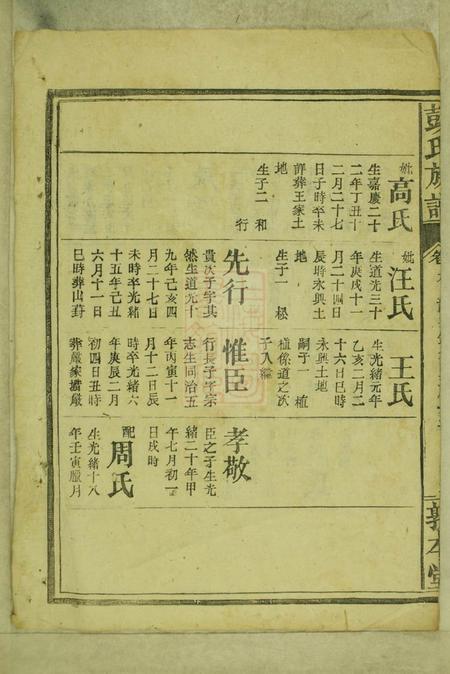 彭氏族譜
敦本堂
妣高氏
生嘉慶二十
二年丁丑十
二月二十七
日子時卒未
詳葬王家土
地
生子二 和
行
妣汪氏
生道光三十
年庚戌十一
月二十四日
辰時永興土
地
生子一 松
先行
貴次子字其
然生道光十
九年己亥四
月二十七日
未時卒光緒
十五年己丑
六月十一日
巳時葬山
王氏
生光緒元年
乙亥二月二
十六日巳時
永興土地
嗣子一 植
植係道之次
子入繼
惟臣
行長子字宗
志生同治五
年丙寅十一
月十二日辰
時卒光緒六
年庚辰二月
初四日丑時
葬嚴家
孝敬
臣之子生光
緒二十年甲
午七月初一
日戌時
配周氏
生光緒十八
年壬寅臘月